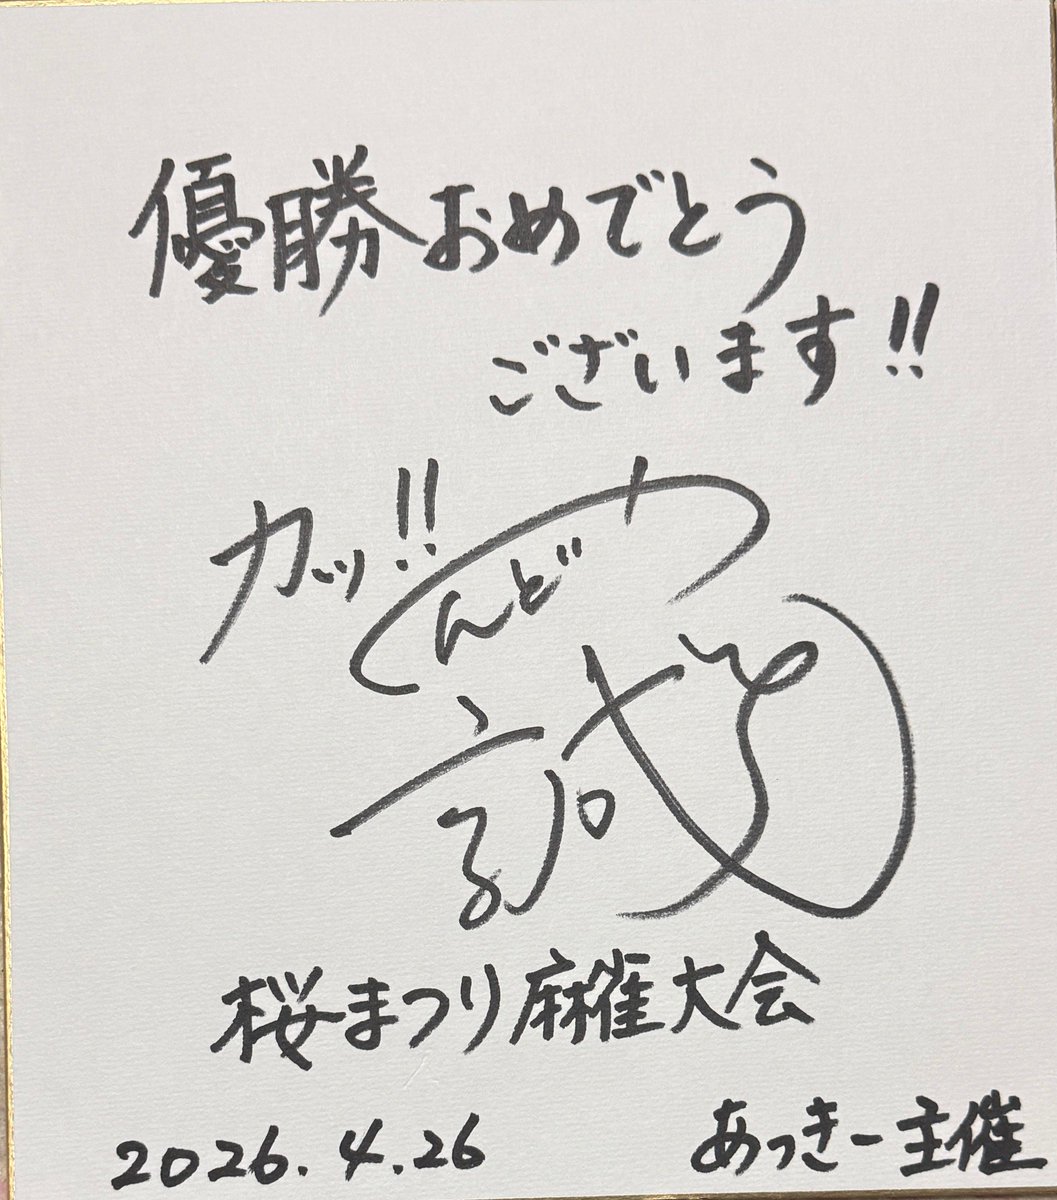 優勝おめでとう
ございます!!
カッ!!
んど
誠
桜まつり麻雀大会
2026.4.26 あっきー主催